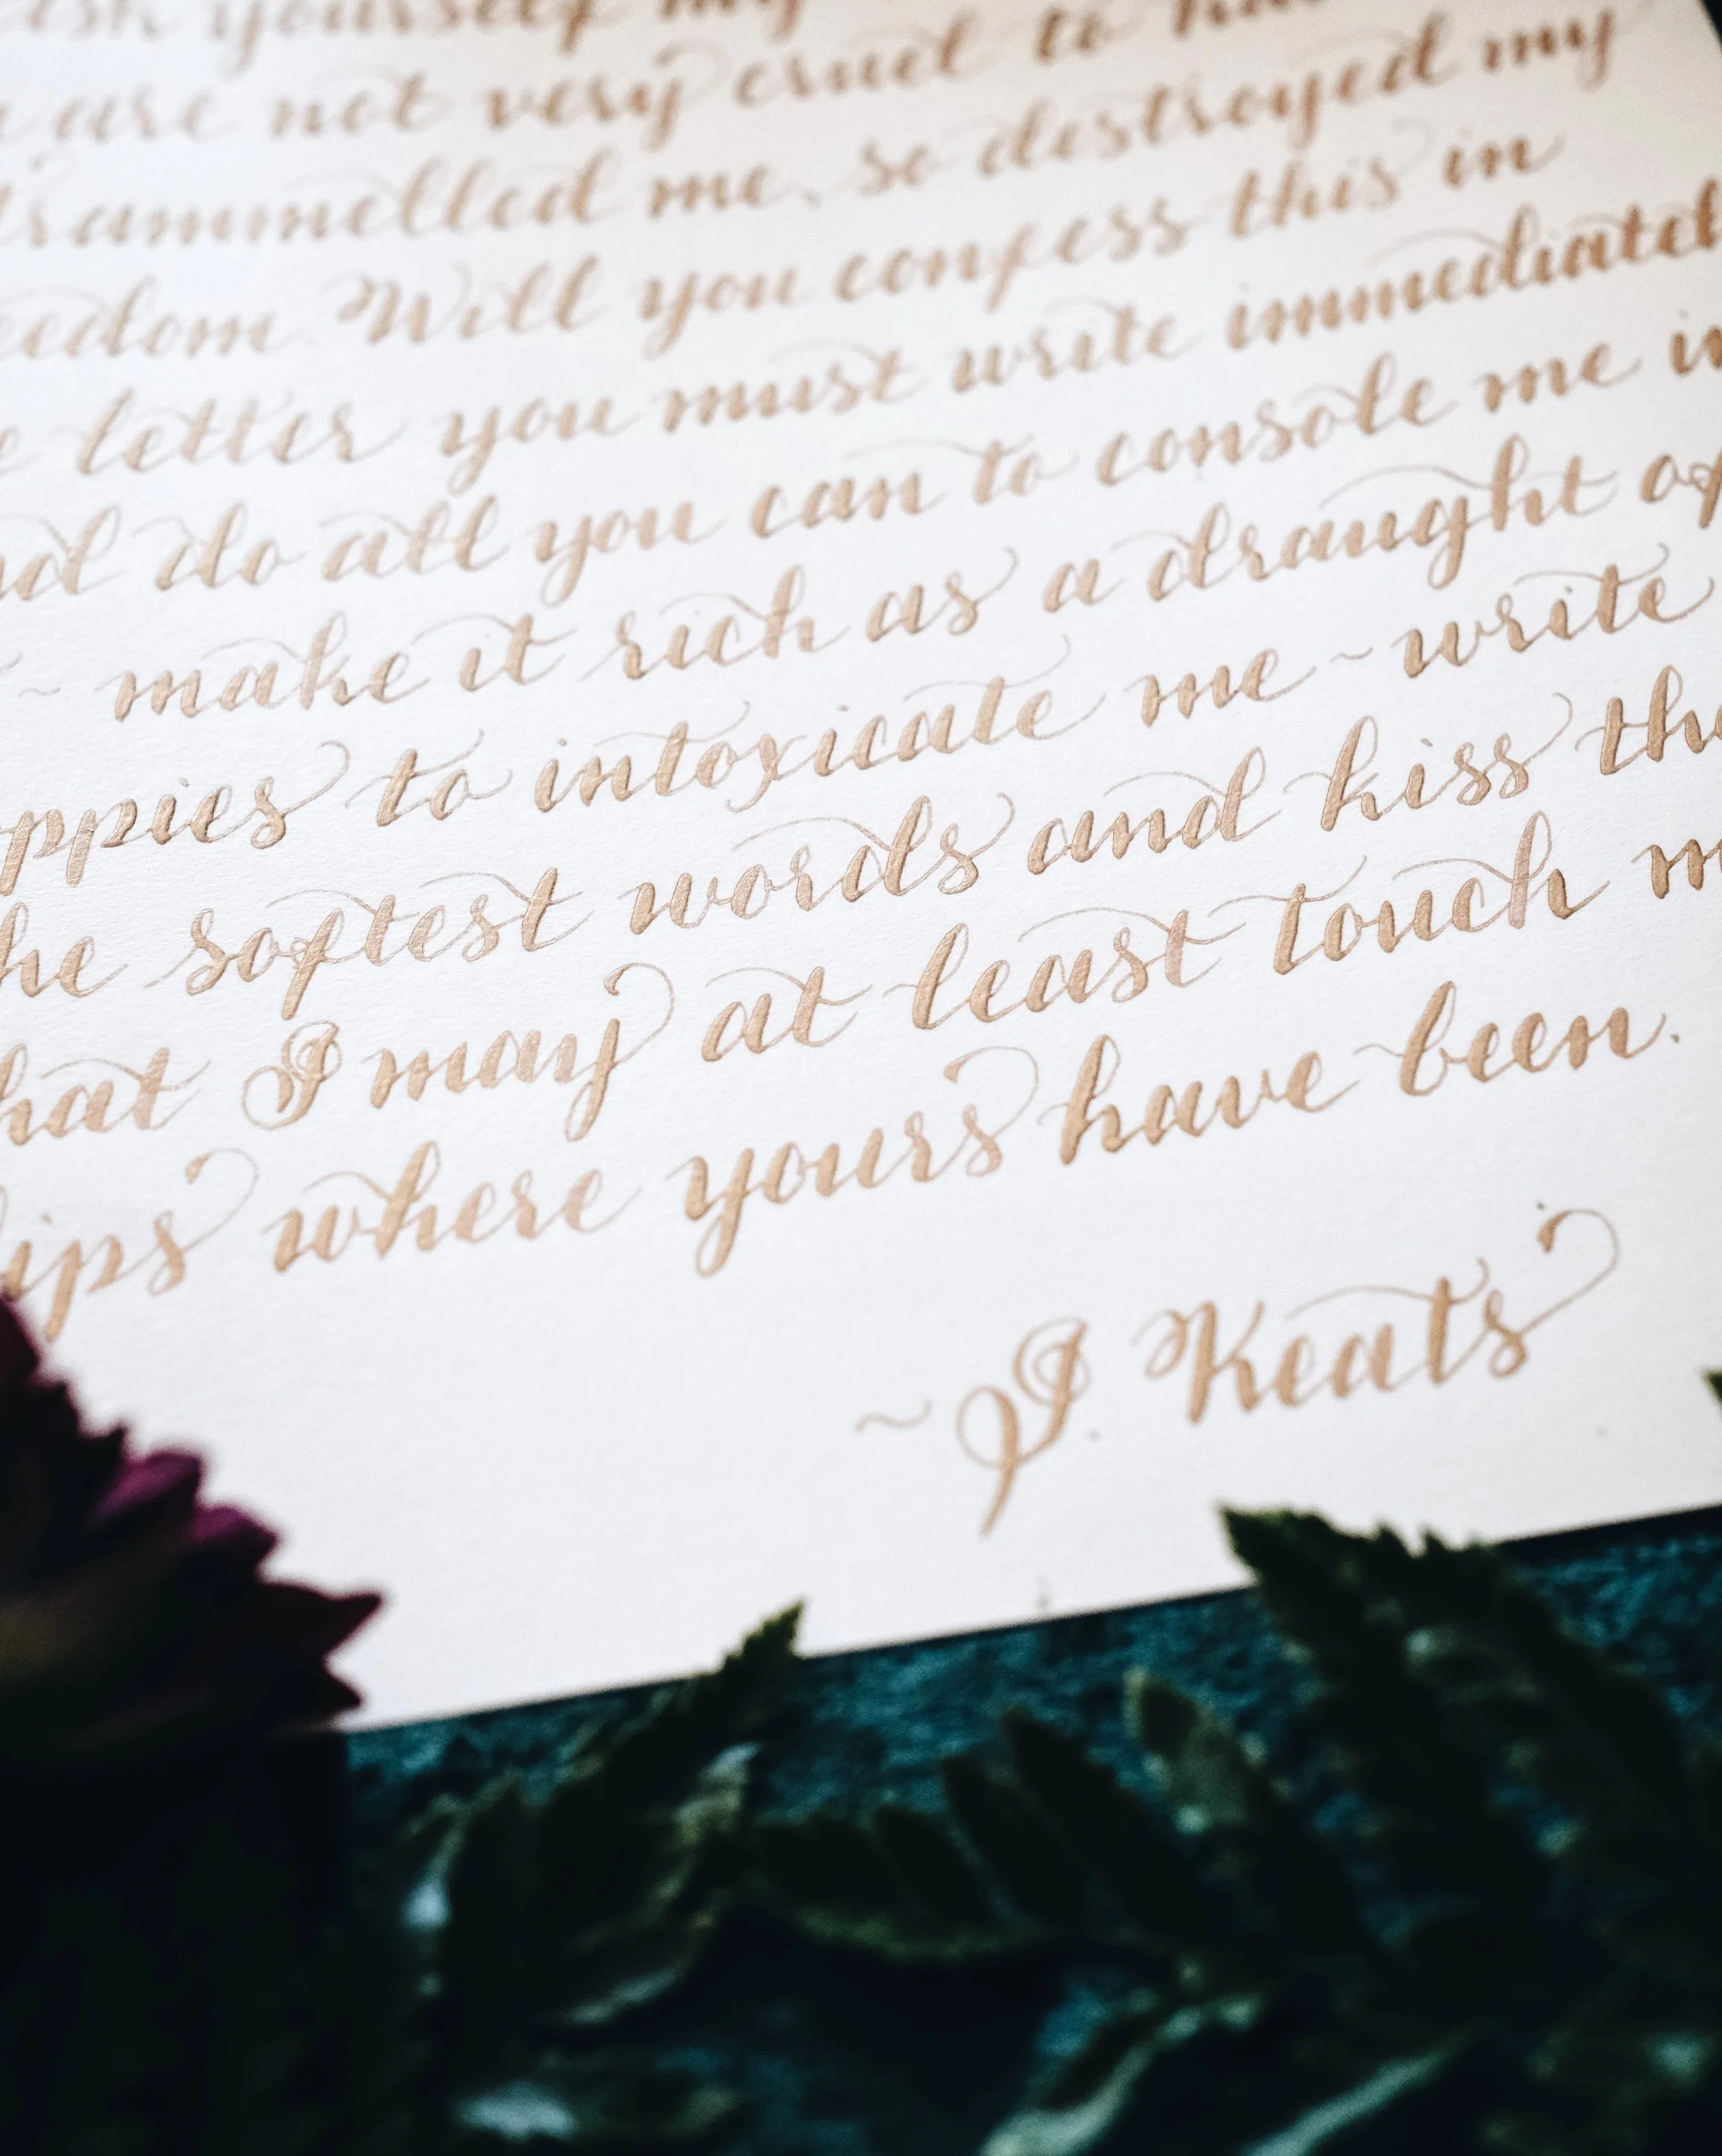 ask yourself my
are not very cruel to
trammelled me, so destroyed my
eedom. Will you confess this in
e letter you must write immediatel
nd do all you can to console me in
~ make it rich as a draught of
oppies to intoxicate me ~ write
he softest words and kiss the
hat I may at least touch m
lips where yours have been.
~ J. Keats